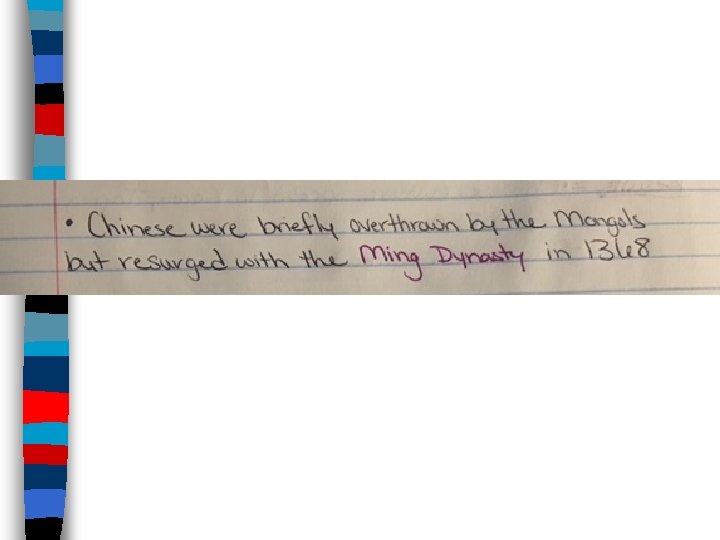 • Chinese were briefly overthrown by the Mongols
but resurged with the Ming Dynasty in 1368